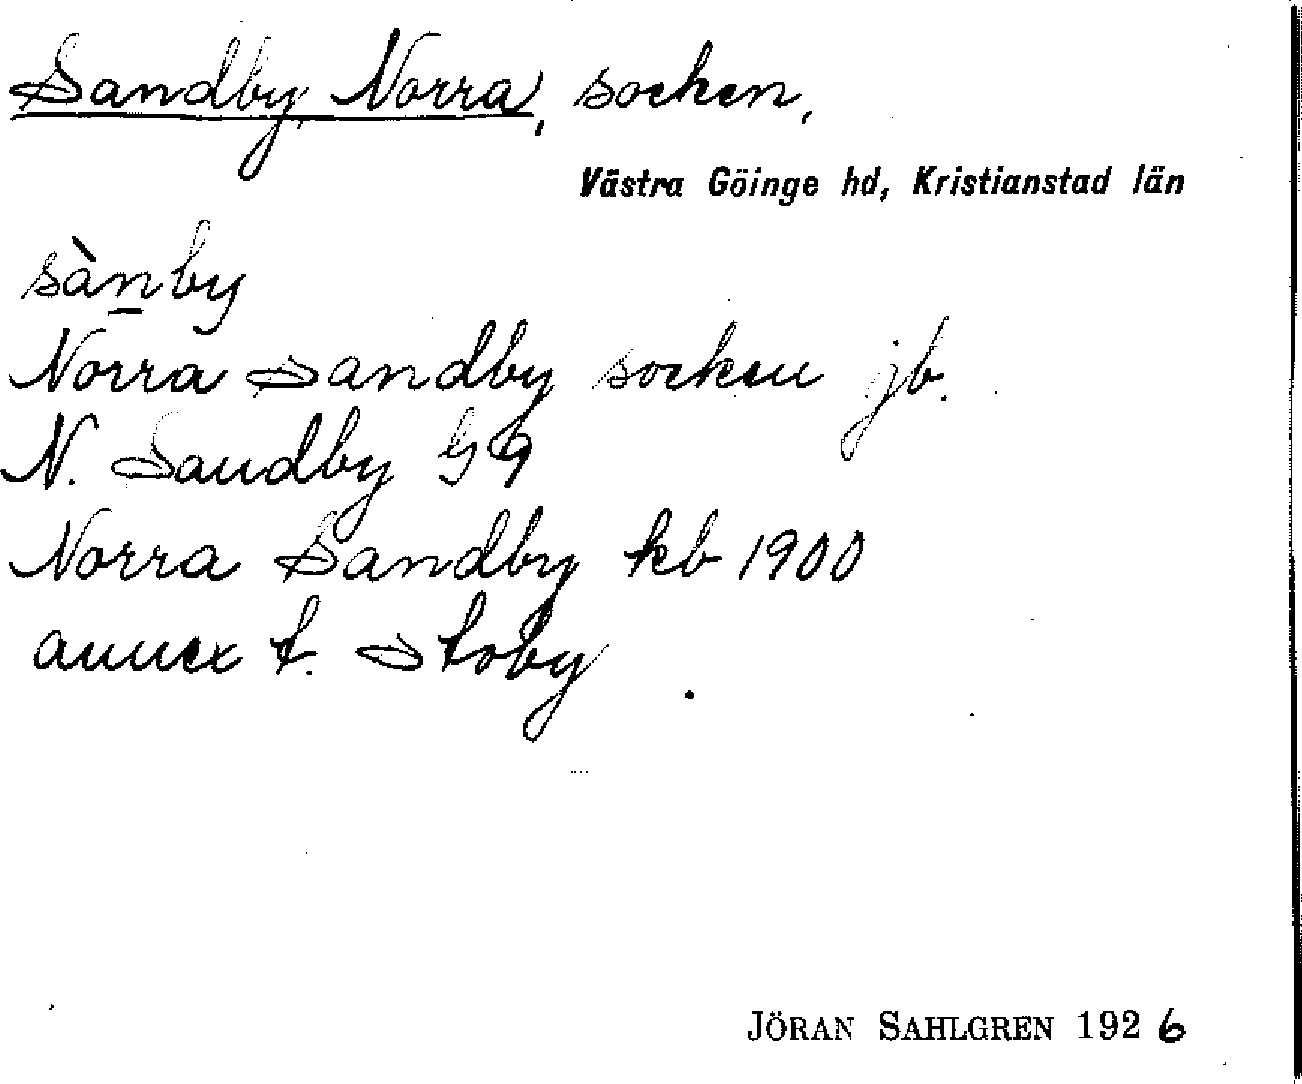 Sandby, Norra, socken,
Västra Göinge hd, Kristianstad län
sànby
Norra Sandby socken jb.
N. Sandby G9
Norra Sandby kb 1900
annex t. Stoby
JÖRAN SAHLGREN 1926